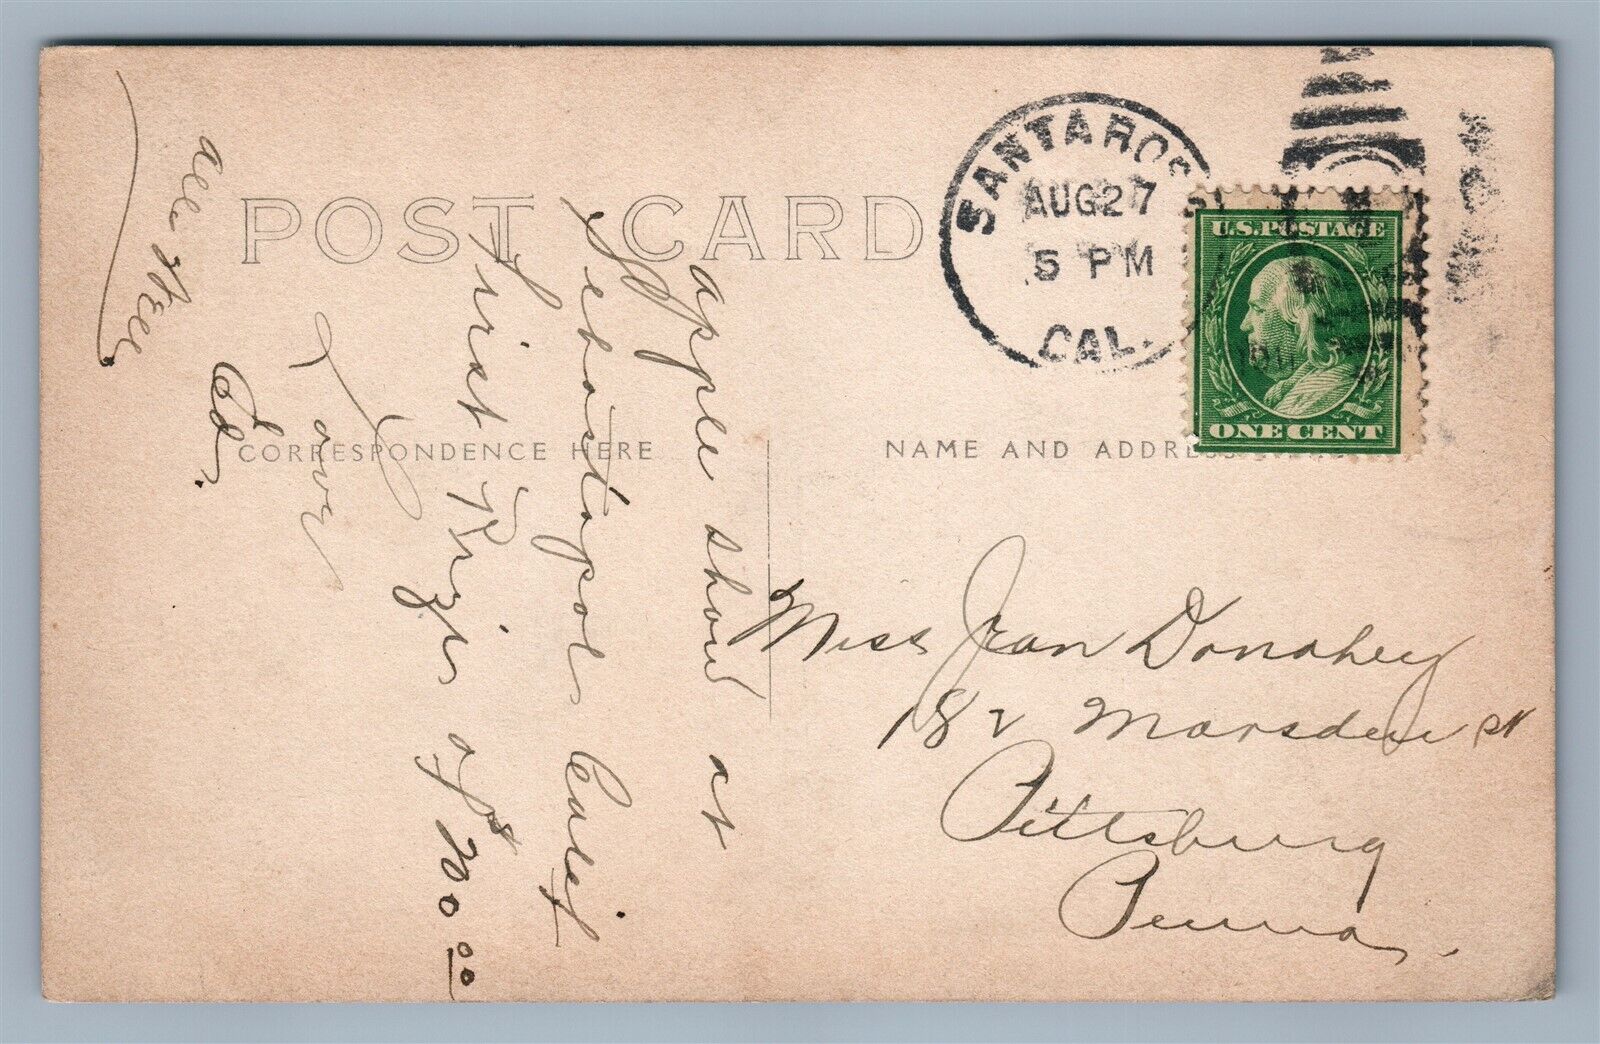 POST CARD
CORRESPONDENCE HERE
NAME AND ADDRESS
SANTA ROS
AUG 27
5 PM
CAL.
U.S. POSTAGE
ONE CENT
apple show at
Sebastapool Calif
First Prize of $200.00
Love
Ed.
all well
Miss Jean Donahey
182 Marsden St
Pittsburg
Penna.